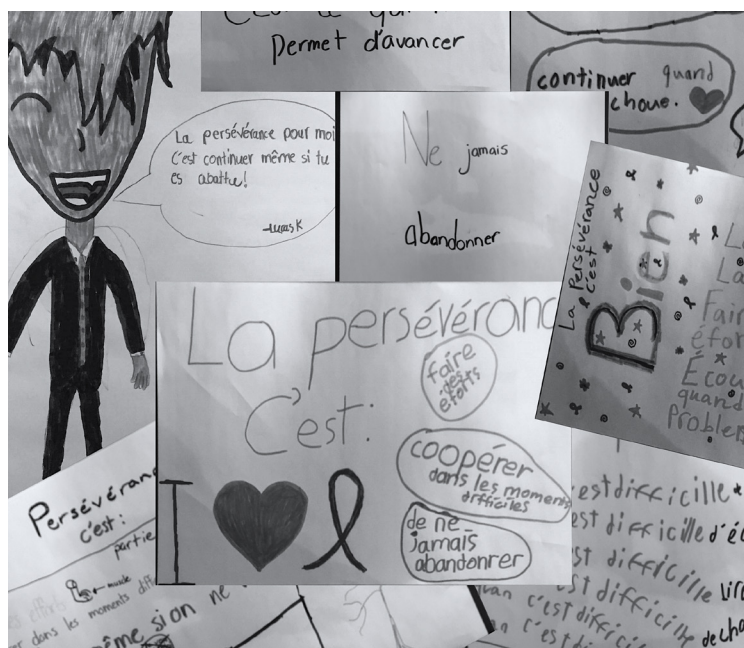 Permet d'avancer
continuer quand
choue.
La persévérance pour moi
C'est continuer même si tu
es abattu!
-Lucas K
Ne jamais
abandonner
La Persévérance
c'est
Bien
La
Fair
éfor
Écou
quand
Problèm
La persévéranc
C'est:
faire
des
éfforts
I
coopérer
dans les moments
difficiles
de ne
jamais
abandonrer
Persévéran
c'est:
partie
muscle
efforts
er dans les moments diff
même si on ne
est difficille
est difficille d'éc
est difficille
est difficille
c'est difficille de cha
c'est diff